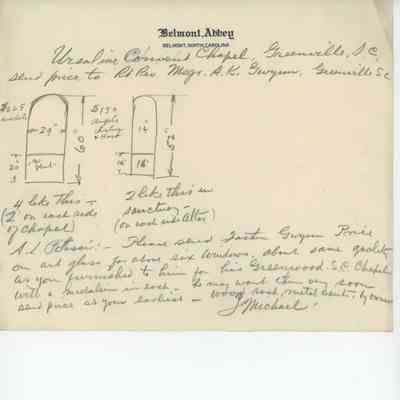 Belmont Abbey
BELMONT, NORTH CAROLINA
Ursuline Convent Chapel, Greenville, S.C.
send price to Rt Rev. Msgr. A. K. Gwynn, Greenville S.C.
29"
20"
14"
16"
16"
4 like this —
(2 on each side
of chapel)
2 like this in
sanctuary —
(on each side altar)
Please send Father Gwynn Price
on art glass for above six windows, about same quality
as you furnished to him for his Greenwood S.C. Chapel
with a medalion in each. He may want them very soon
send price at your earliest — wood sash, metal vents,
Michael